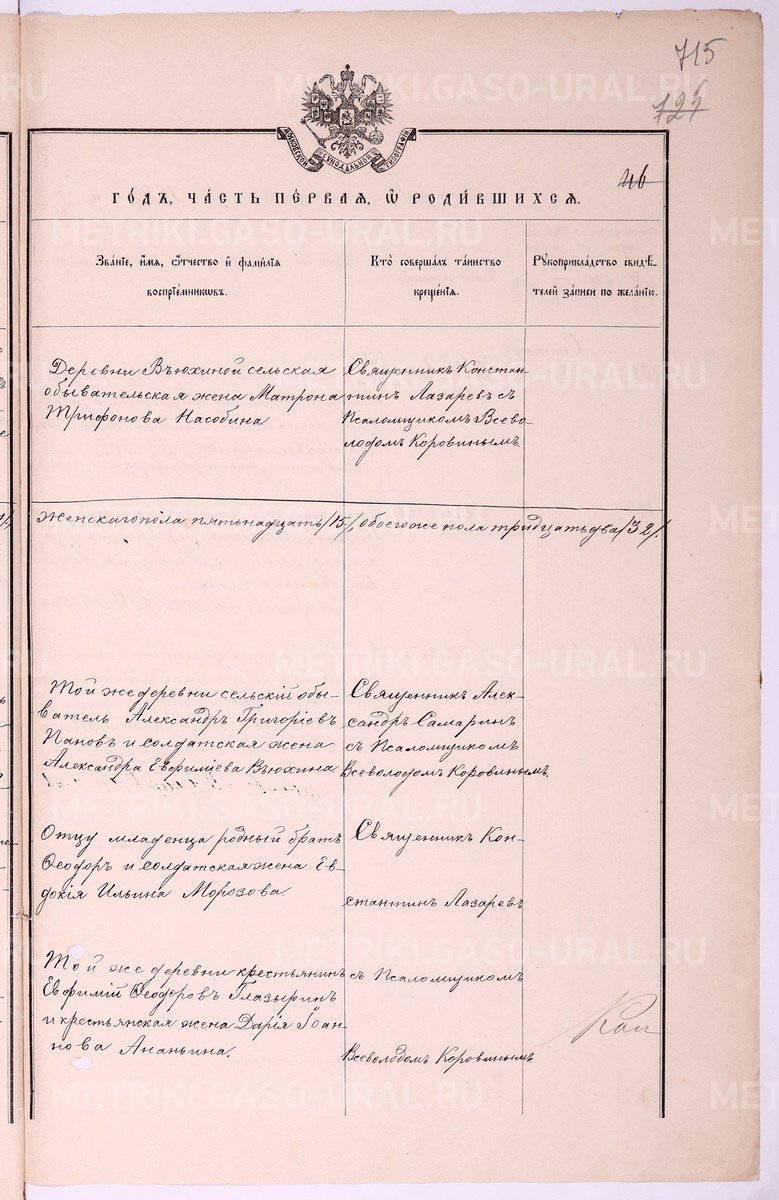 715
724
46
МОСКОВСКОЙ СѴНОДАЛЬНОЙ ТИПОГРАФІИ
ГО́ДЪ, ЧА́СТЬ ПЕ́РВАЯ, Ѿ РОДИ́ВШИХСЯ.
Зва́нїе, и҆́мя, ѻ҆́тчество и҆ фами́лїя
воспрїе́мникѡвъ.
Кто̀ соверша́лъ та́инство
креще́нїя.
Рꙋкоприкла́дство свидѣ́-
телей за́писи по жела́нїю.
Деревни Вьюхиной сельская
обывательская жена Матрона
Трифонова Насобина
Священникъ Констан-
тинъ Лазаревъ съ
Псаломщикомъ Всево-
лодомъ Коровинымъ.
Женскаго пола пятьнадцать /15/, обоего же пола тридцать два /32/.
Той же деревни сельскій обы-
ватель Александръ Григоріевъ
Пановъ и солдатская жена
Александра Евфиміева Вьюхина
Священникъ Алек-
сандръ Самаринъ
съ Псаломщикомъ
Всеволодомъ Коровинымъ.
Отцу младенца родный братъ
Ѳеодоръ и солдатская жена Ев-
докія Ильина Морозова.
Священникъ Кон-
стантинъ Лазаревъ
Той же деревни крестьянинъ
Евфимій Ѳеодоровъ Глазыринъ
и крестьянская жена Дарія Іоан-
нова Ананьина.
съ Псаломщикомъ
Всеволодомъ Коровинымъ
METRIKI.GASO-URAL.RU